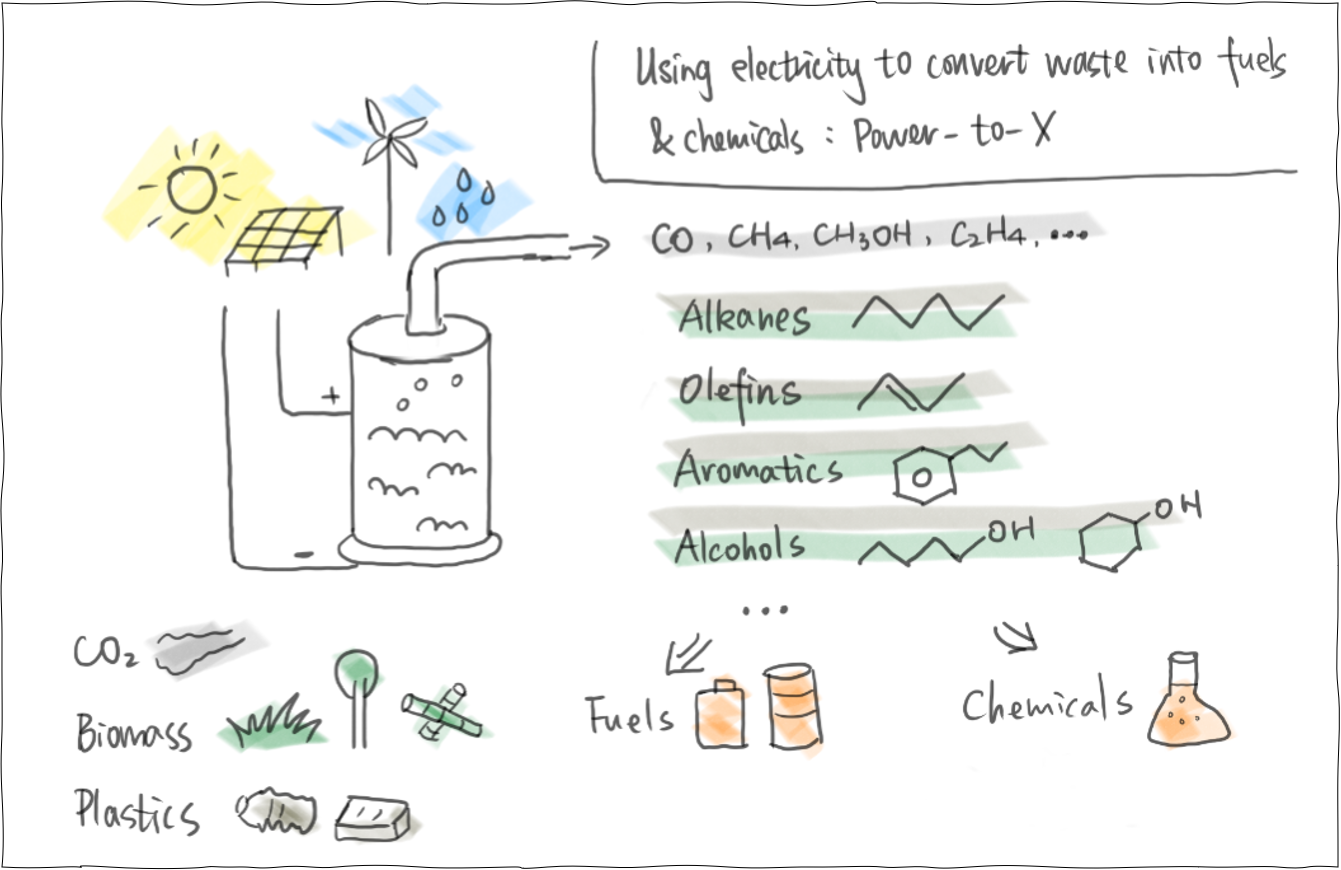 Using electricity to convert waste into fuels
& chemicals : Power-to-X
CO, CH4, CH3OH, C2H4, ...
Alkanes
Olefins
Aromatics
Alcohols OH OH
...
+
-
CO2
Biomass
Plastics
Fuels
Chemicals